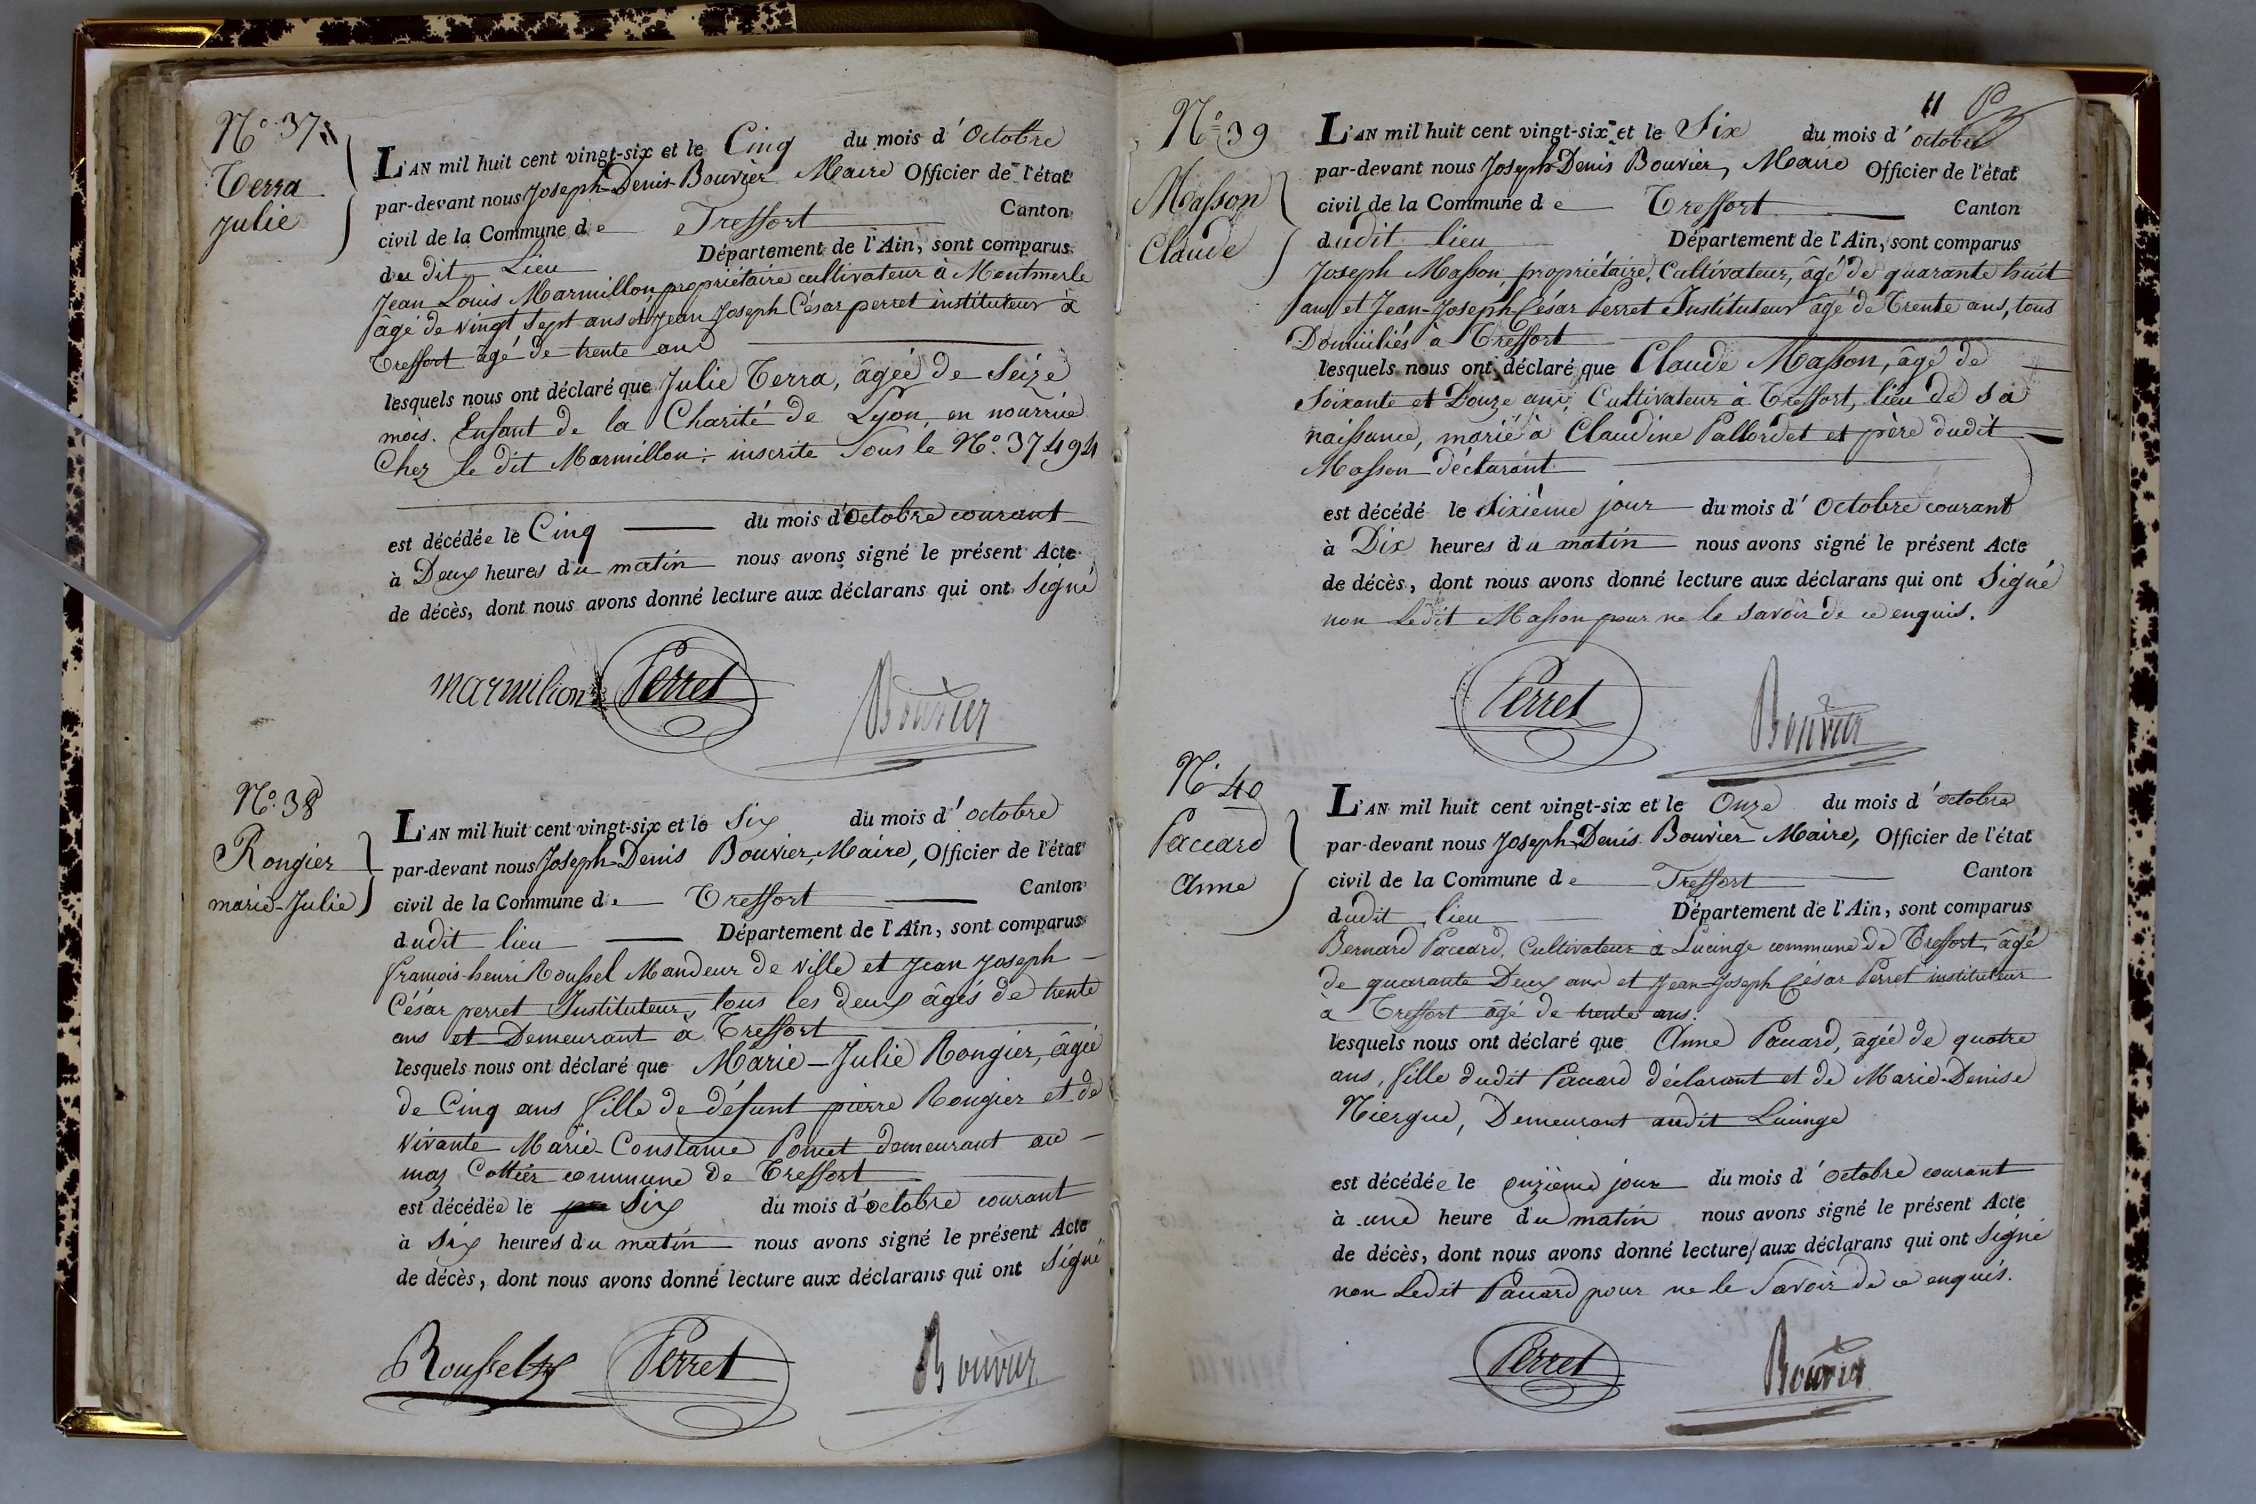 N.º 37
Terra
Julie
L'AN mil huit cent vingt-six et le Cinq du mois d'Octobre
par-devant nous Joseph-Denis Bouvier Maire Officier de l'état
civil de la Commune de Treffort Canton
du dit Lieu Département de l'Ain, sont comparus
Jean Louis Marmillon, propriétaire cultivateur à Montmerle
âgé de vingt sept ans et Jean Joseph César perret instituteur à
Treffort âgé de trente ans
lesquels nous ont déclaré que Julie Terra, âgée de Seize
mois. Enfant de la Charité de Lyon, en nourrice
Chez le dit Marmillon: inscrite Sous le N.º 37494
est décédée le Cinq du mois d'Octobre courant
à Deux heures du matin nous avons signé le présent Acte
de décès, dont nous avons donné lecture aux déclarans qui ont Signé
marmilion Perret Bouvier
N.º 38
Rongier
marie-Julie
L'AN mil huit cent vingt-six et le Six du mois d'octobre
par-devant nous Joseph-Denis Bouvier, Maire, Officier de l'état
civil de la Commune de Treffort Canton
dudit lieu Département de l'Ain, sont comparus
françois-henri Roussel Mandeur de Ville et Jean Joseph
César perret Instituteur, tous les deux âgés de trente
ans et Demeurant à Treffort
lesquels nous ont déclaré que Marie-Julie Rongier, âgée
de Cinq ans fille de défunt pierre Rongier et de
vivante Marie-Constance Poncet demeurant au
maz Cottier commune de Treffort
est décédée le Six du mois d'octobre courant
à Six heures du matin nous avons signé le présent Acte
de décès, dont nous avons donné lecture aux déclarans qui ont Signé
Roussel Perret Bouvier
11
N.º 39
Masson
Claude
L'AN mil huit cent vingt-six et le Six du mois d'octobre
par-devant nous Joseph-Denis Bouvier, Maire Officier de l'état
civil de la Commune de Treffort Canton
dudit lieu Département de l'Ain, sont comparus
Joseph Masson, propriétaire, Cultivateur, âgé de quarante huit
ans et Jean-Joseph César Perret Instituteur âgé de Trente ans, tous
Domiciliés à Treffort
lesquels nous ont déclaré que Claude Masson, âgé de
Soixante et Douze ans, Cultivateur à Treffort, lieu de sa
naissance, marié à Claudine Pallordet et père dudit
Masson déclarant
est décédé le Sixième jour du mois d'Octobre courant
à Dix heures du matin nous avons signé le présent Acte
de décès, dont nous avons donné lecture aux déclarans qui ont Signé
non Ledit Masson pour ne le savoir de ce enquis.
Perret Bouvier
N.º 40
Paccard
Anne
L'AN mil huit cent vingt-six et le Onze du mois d'octobre
par-devant nous Joseph-Denis Bouvier Maire, Officier de l'état
civil de la Commune de Treffort Canton
dudit lieu Département de l'Ain, sont comparus
Bernard Paccard, Cultivateur à Lucinge commune de Treffort, âgé
de quarante Deux ans et Jean-Joseph César Perret instituteur
à Treffort âgé de trente ans.
lesquels nous ont déclaré que Anne Paccard, âgée de quatre
ans, fille dudit Paccard déclarant et de Marie-Denise
Niergue, Demeurant audit Lucinge
est décédée le onzième jour du mois d'octobre courant
à une heure du matin nous avons signé le présent Acte
de décès, dont nous avons donné lecture aux déclarans qui ont Signé
non Ledit Paccard pour ne le Savoir de ce enquis.
Perret Bouvier